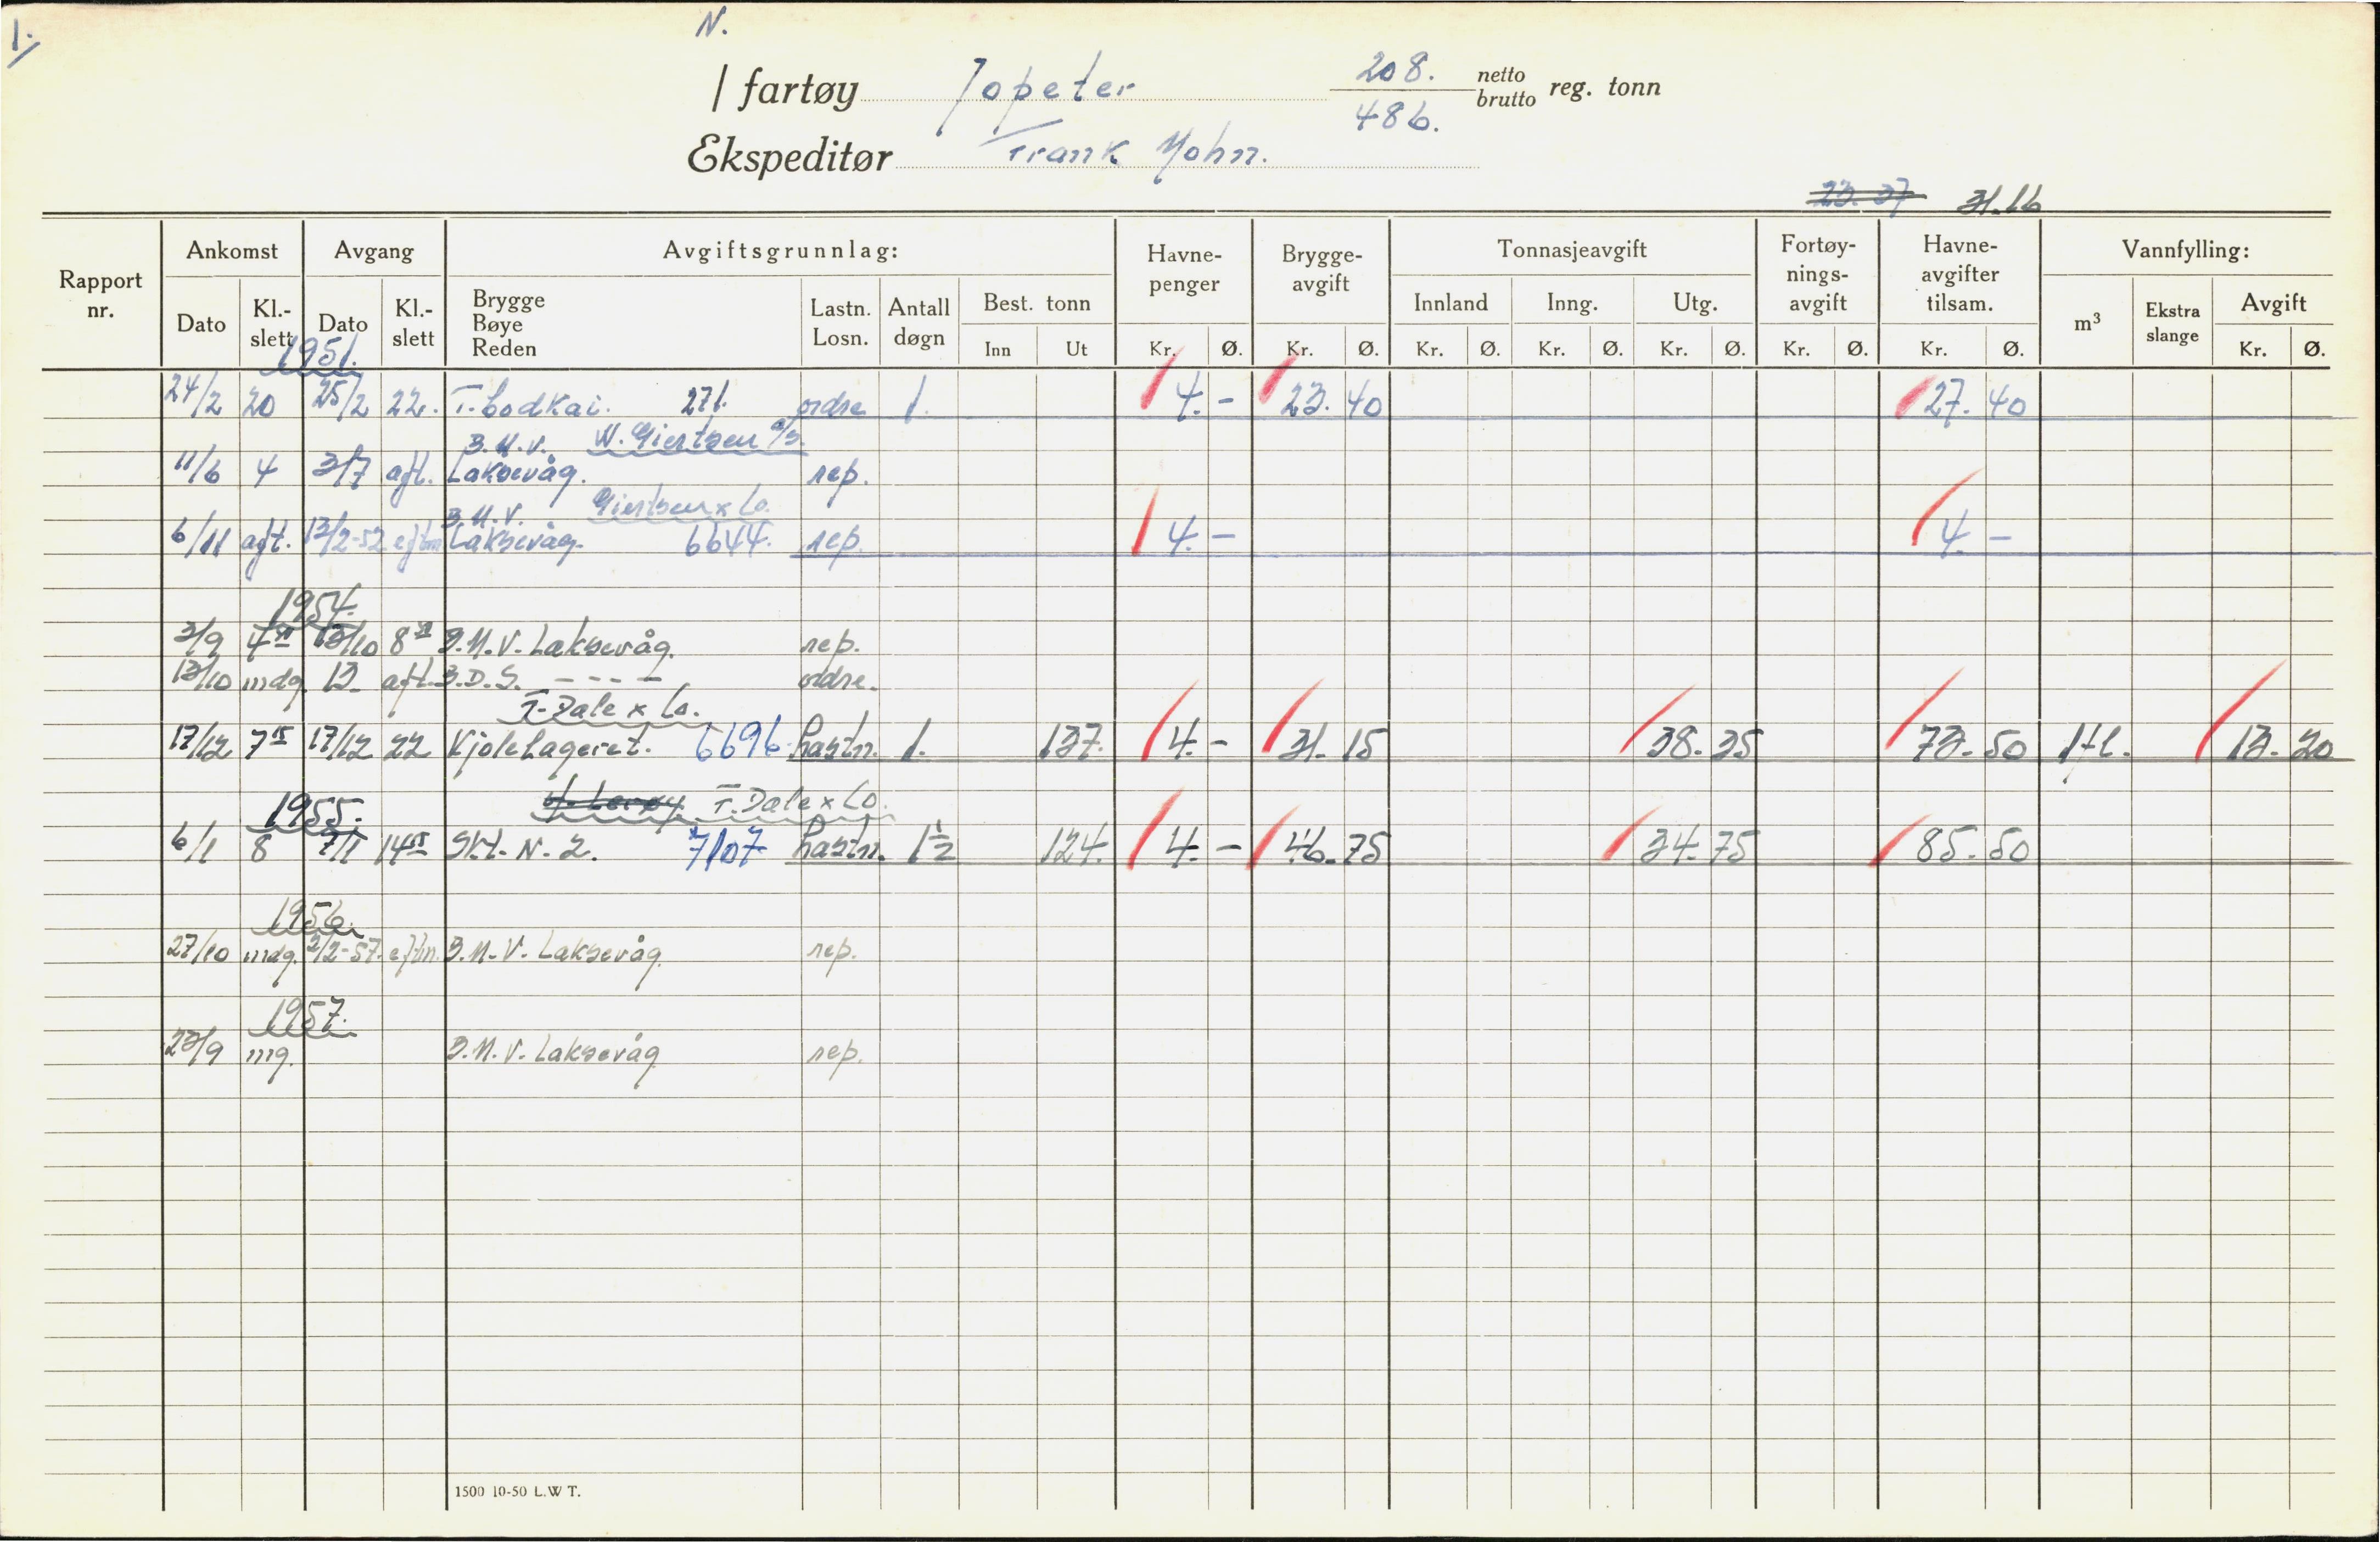 1.
N.
/ fartøy Jopeter 208. netto reg. tonn
486. brutto
Ekspeditør Frank Mohn.
23.37 31.16
Rapport nr. Ankomst Avgang Avgiftsgrunnlag: Havne-penger Brygge-avgift Tonnasjeavgift Fortøy-nings-avgift Havne-avgifter tilsam. Vannfylling:
Dato Kl.-slett Dato Kl.-slett Brygge Bøye Reden Lastn. Losn. Antall døgn Best. tonn Innland Inng. Utg. m³ Ekstra slange Avgift
Inn Ut Kr. Ø. Kr. Ø. Kr. Ø. Kr. Ø. Kr. Ø. Kr. Ø. Kr. Ø. Kr. Ø.
1951.
24/2 20 25/2 22. T.bodkai. 271. ordre 1. 4.- 23.40 27.40
B.M.V. W. Giertsen a/s.
11/6 4 3/7 aft. Laksevåg. rep.
B.M.V. Giertsen x Co.
6/11 aft. 13/2-52 eftm Laksevåg. 6644. rep. 4.- 4.-
1954.
3/9 13/10 B.M.V. Laksevåg. rep.
13/10 mdg. 13. aft. B.D.S. - - - - ordre.
T. Dale x Co.
17/12 7 15 17/12 22 Kjølelageret. 6696 Lastn. 1. 137. 4.- 31.15 38.35 73.50 1 fl. 13.20
1955. T. Dale x Co.
6/1 8 7/1 14 55 Skt. N. 2. 7107 Lastn. 1 1/2 124. 4.- 46.75 34.75 85.50
1956.
27/10 mdg. 2/2-57. eftm. B.M.V. Laksevåg. rep.
1957.
23/9 mg. B.M.V. Laksevåg rep.
1500 10-50 L.W T.